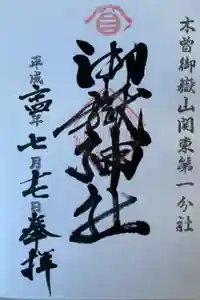 木曽御嶽山関東第一分社
御嶽神社
平成二十四年七月七日奉拝